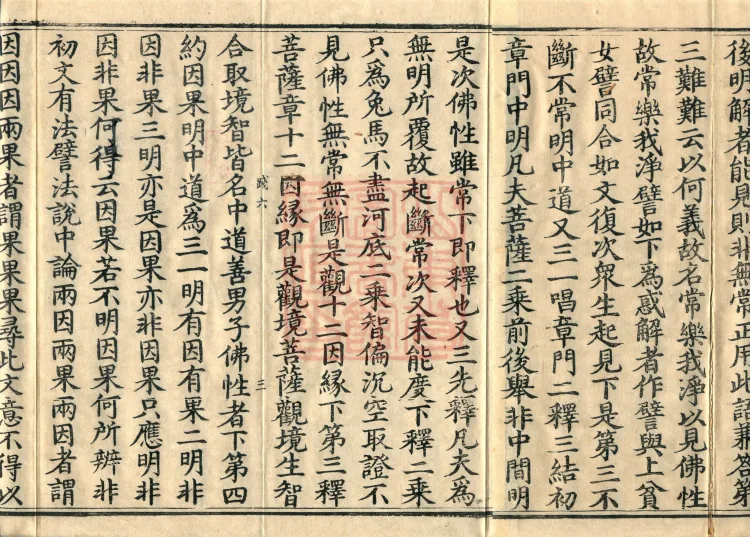 後明解者能見則非無常正用此語兼答第
三難難云以何義故名常樂我淨以見佛性
故常樂我淨譬如下為惑解者作譬與上貧
女譬同合如文復次眾生起見下是第三不
斷不常明中道又三一唱章門二釋三結初
章門中明凡夫菩薩二乘前後舉非中間明
是次佛性雖常下即釋也又三先釋凡夫為
無明所覆故起斷常次又未能度下釋二乘
只為兔馬不盡河底二乘智偏沉空取證不
見佛性無常無斷是觀十二因緣下第三釋
菩薩章十二因緣即是觀境菩薩觀境生智
合取境智皆名中道善男子佛性者下第四
約因果明中道為三一明有因有果二明非
因非果三明亦是因果亦非因果只應明非
因非果何得云因果若不明因果何所辨非
初文有法譬法說中論兩因兩果兩因者謂
因因因兩果者謂果果果尋此文意不得以
三